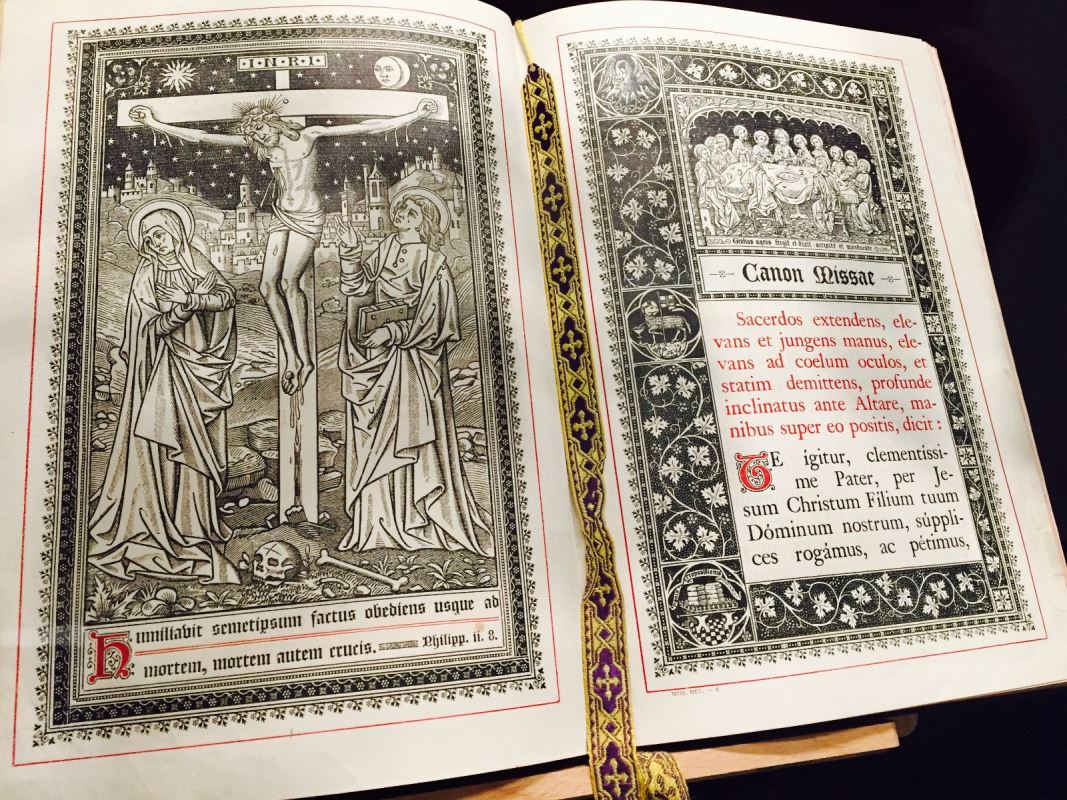 I·N·R·I
Humiliavit semetipsum factus obediens usque ad
mortem, mortem autem crucis. Philipp. ii. 8.
Canon Missae
Sacerdos extendens, ele-
vans et jungens manus, ele-
vans ad coelum oculos, et
statim demittens, profunde
inclinatus ante Altare, ma-
nibus super eo positis, dicit :
TE igitur, clementissi-
me Pater, per Je-
sum Christum Filium tuum
Dóminum nostrum, súppli-
ces rogámus, ac pétimus,